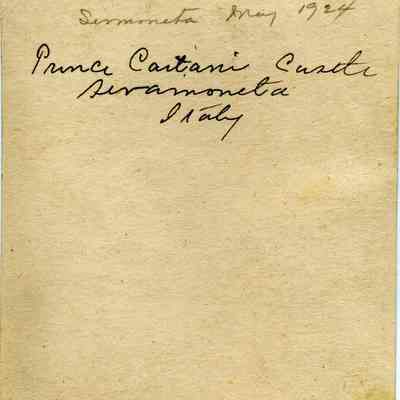 Sermoneta May 1924
Prince Caetani Castle
Seramoneta
Italy